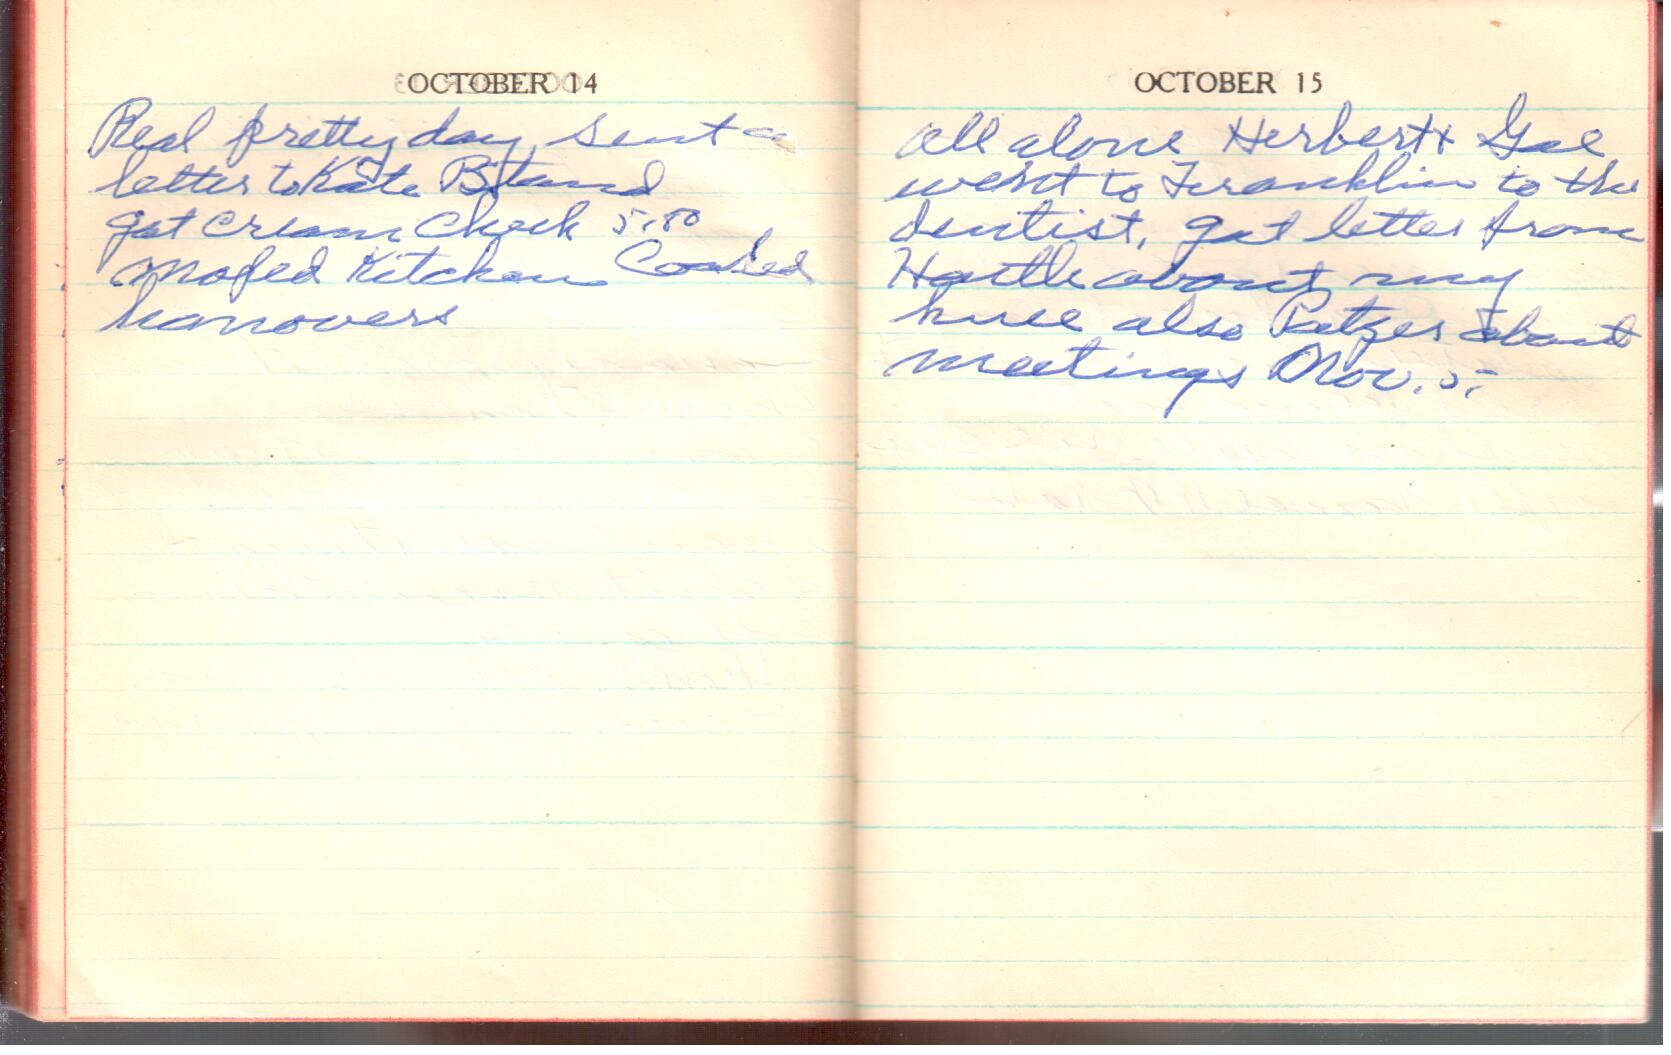 OCTOBER 14
Real pretty day, sent a
letter to Kate
got cream check 5.80
moped Kitchen Cooked
hanovers
OCTOBER 15
all alone Herbert &
went to Franklin to the
dentist, got letter from
about my
knee also about
meetings Nov. 5-